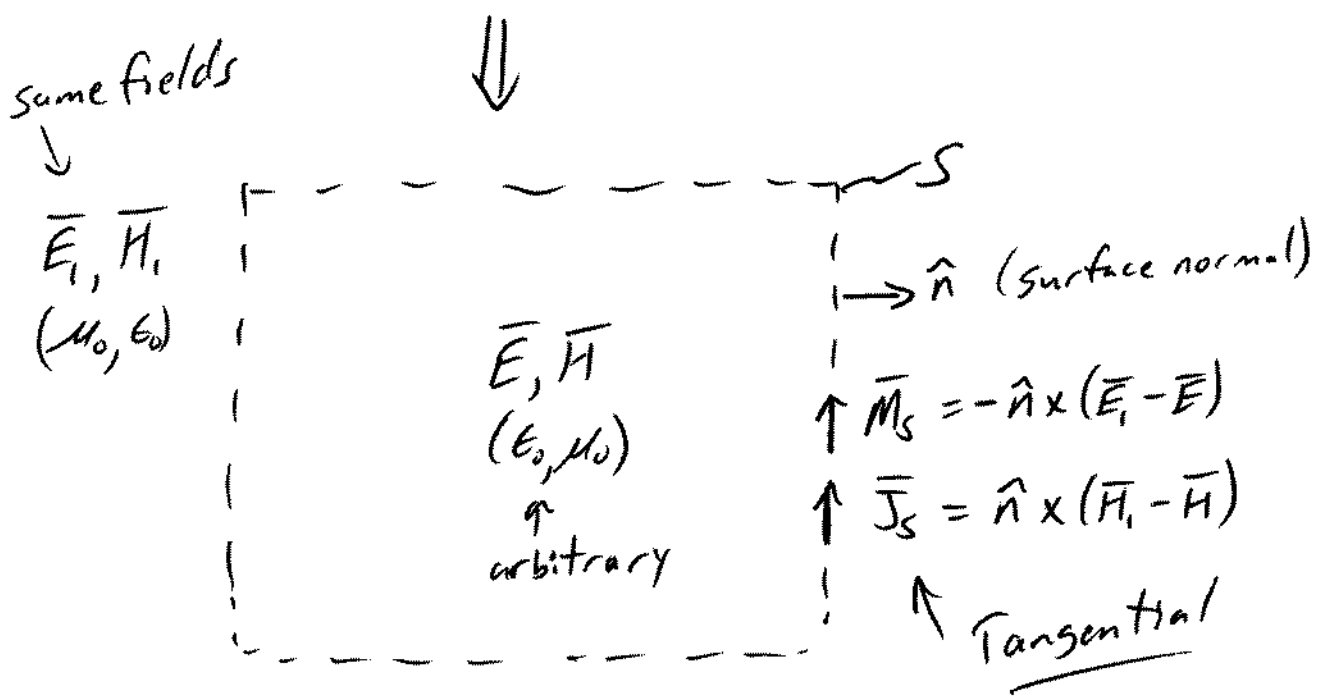 same fields
S
E̅₁, H̅₁
(μ₀, ε₀)
n̂ (surface normal)
E̅, H̅
(ε₀, μ₀)
arbitrary
M̅ₛ = -n̂ × (E̅₁ - E̅)
J̅ₛ = n̂ × (H̅₁ - H̅)
Tangential